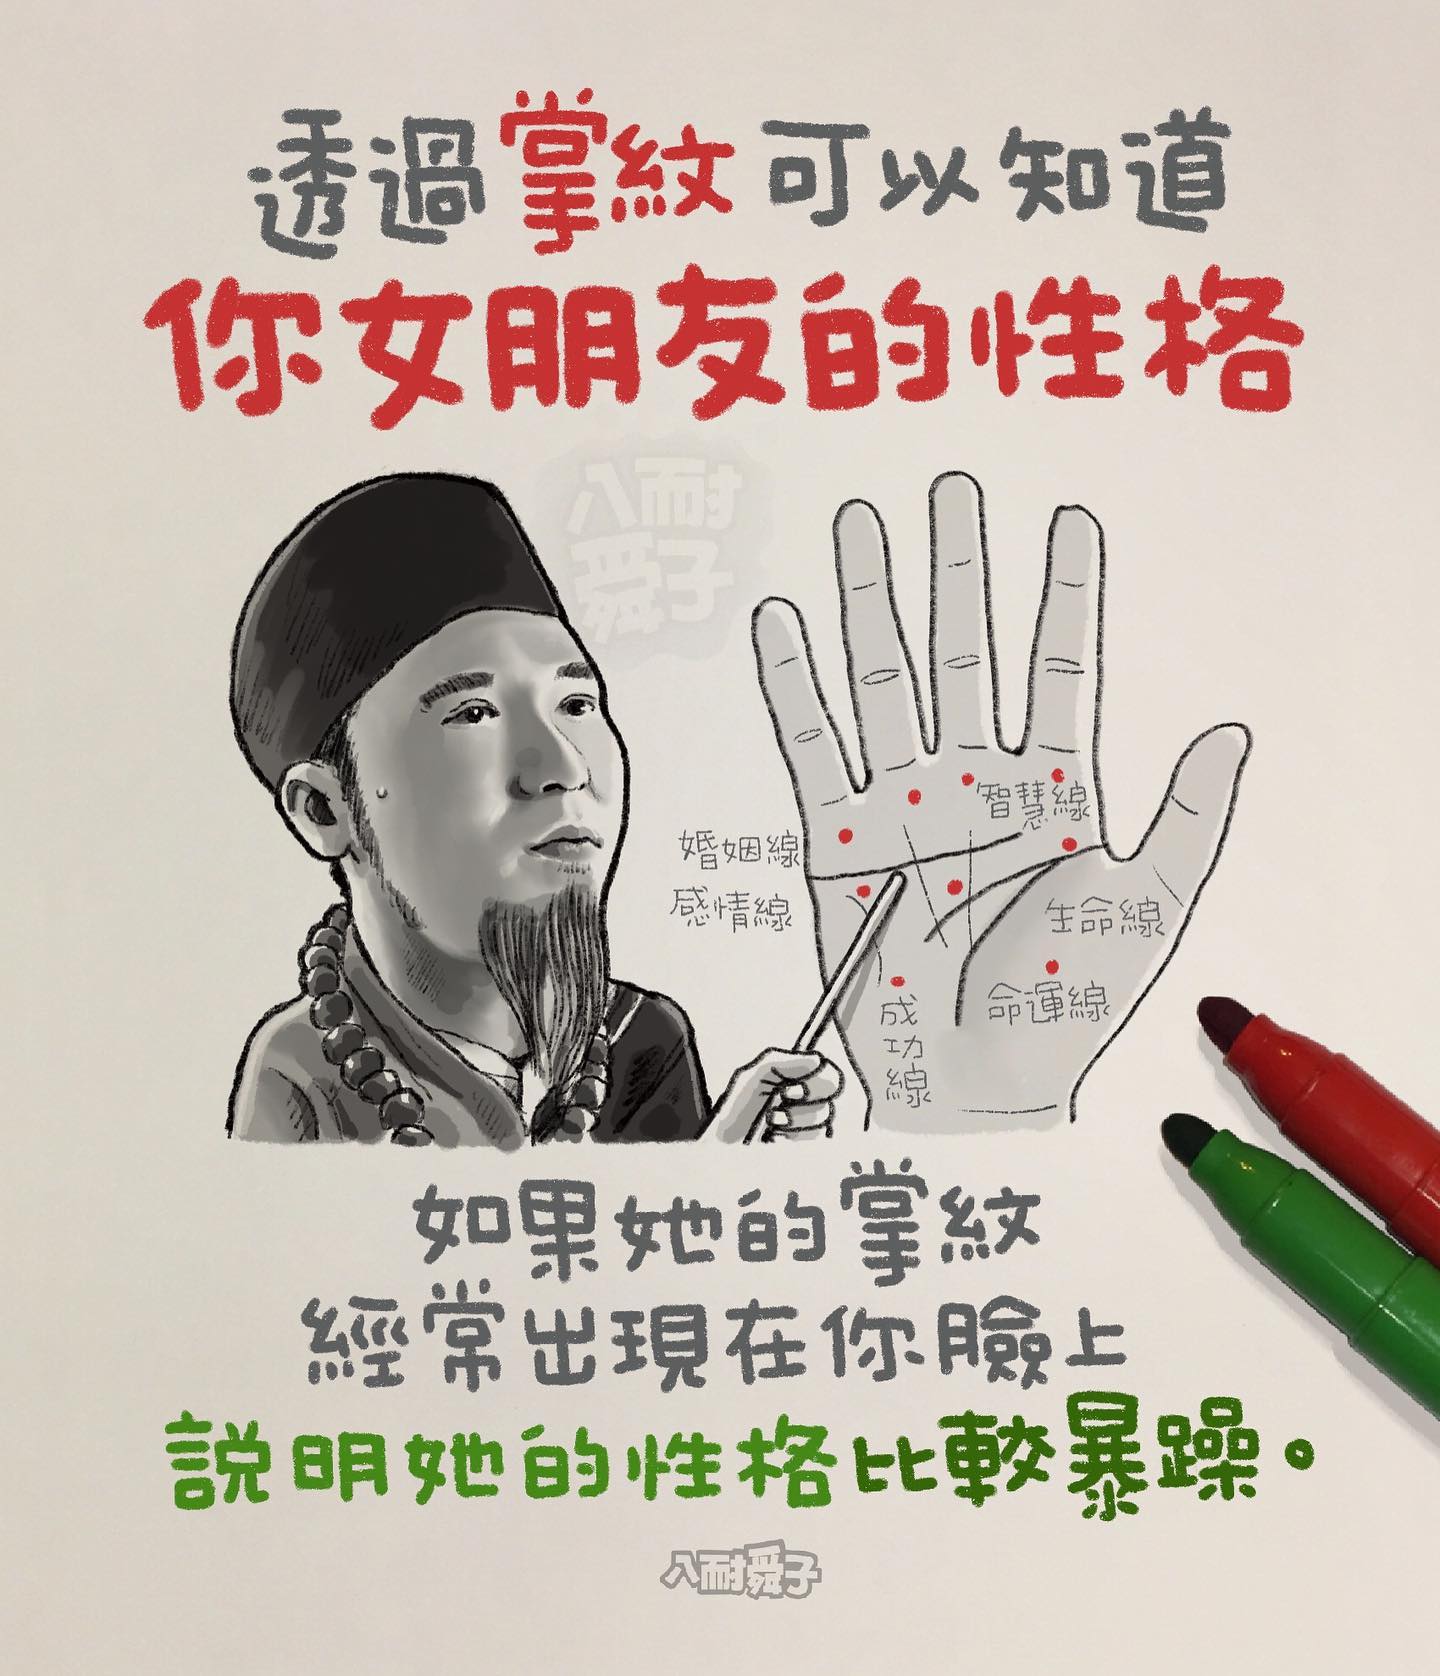 透過掌紋可以知道
你女朋友的性格
八耐
舜子
智慧線
婚姻線
感情線
生命線
命運線
成
功
線
如果她的掌紋
經常出現在你臉上
説明她的性格比較暴躁。
八耐舜子